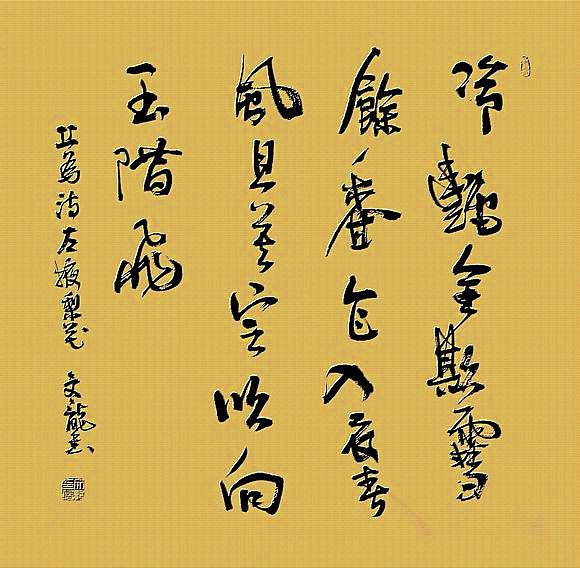 冷艷全欺雪
餘香乍入衣春
風且莫定吹向
玉階飛
丘為詩左掖梨花 文龍書